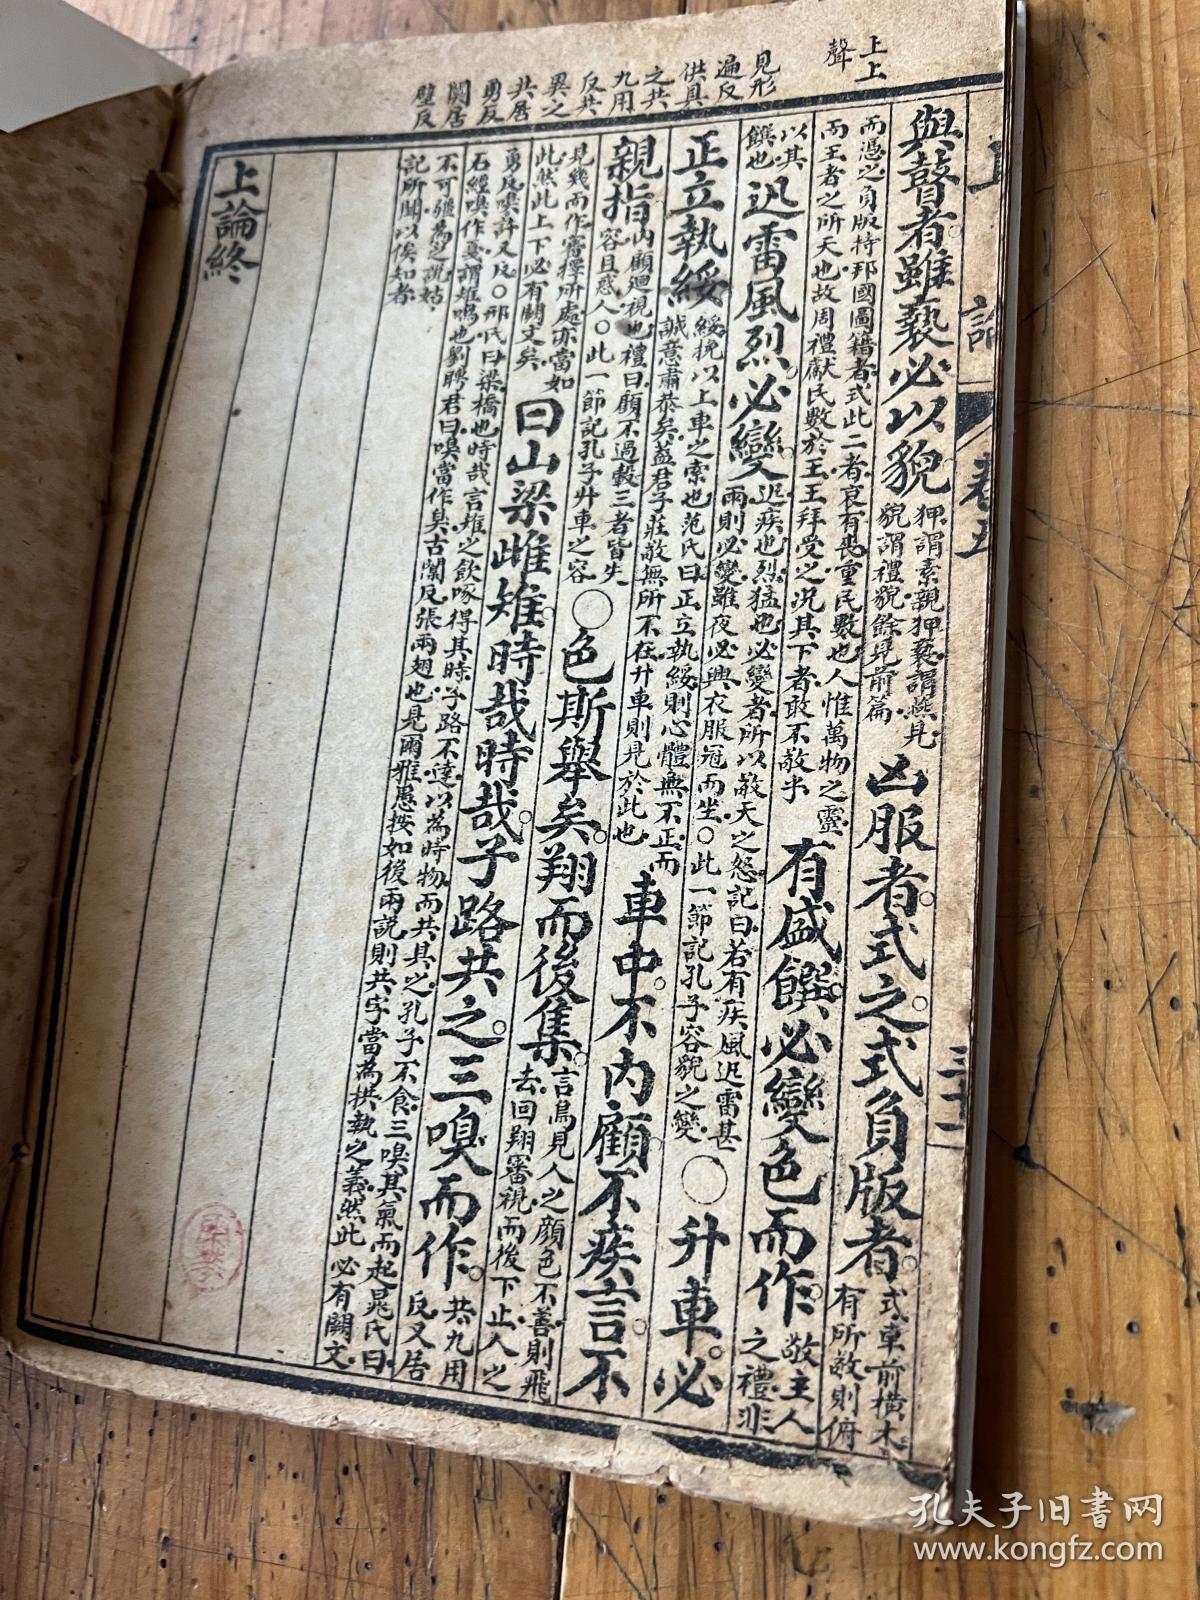 上上
聲
見形
遍反
供具
之共
九用
反共
異之
共居
勇反
闃居
壁反
上論 卷五
與瞽者雖褻必以貌
狎謂素親狎褻謂燕見
貌謂禮貌餘見前篇
凶服者式之式負版者
式車前橫木
有所敬則俯
而憑之負版持邦國圖籍者式此二者哀有喪重民數也人惟萬物之靈
而王者之所天也故周禮獻民數於王王拜受之況其下者敢不敬乎
有盛饌必變色而作
敬主人
之禮非
以其
饌也
迅雷風烈必變
迅疾也烈猛也必變者所以敬天之怒記曰若有疾風迅雷甚
雨則必變雖夜必興衣服冠而坐○此一節記孔子容貌之變
○升車必
正立執綏
綏挽以上車之索也范氏曰正立執綏則心體無不正而
誠意肅恭矣蓋君子莊敬無所不在升車則見於此也
車中不內顧不疾言不
親指
內顧廻視也禮曰顧不過轂三者皆失
容且惑人○此一節記孔子升車之容
○色斯舉矣翔而後集
言鳥見人之顏色不善則飛
去回翔審視而後下止人之
見幾而作審擇所處亦當如
此然此上下必有闕文矣
曰山梁雌雉時哉時哉子路共之三嗅而作
共九用
反又居
勇反嗅許又反○邢氏曰梁橋也時哉言雉之飲啄得其時子路不達以為時物而共具之孔子不食三嗅其氣而起晁氏曰
石經嗅作戞謂雉鳴也劉聘君曰嗅當作臭古闃反張兩翅也見爾雅愚按如後兩說則共字當為拱執之義然此必有闕文
不可強為之說姑
記所聞以俟知者
上論終
孔夫子旧书网
www.kongfz.com